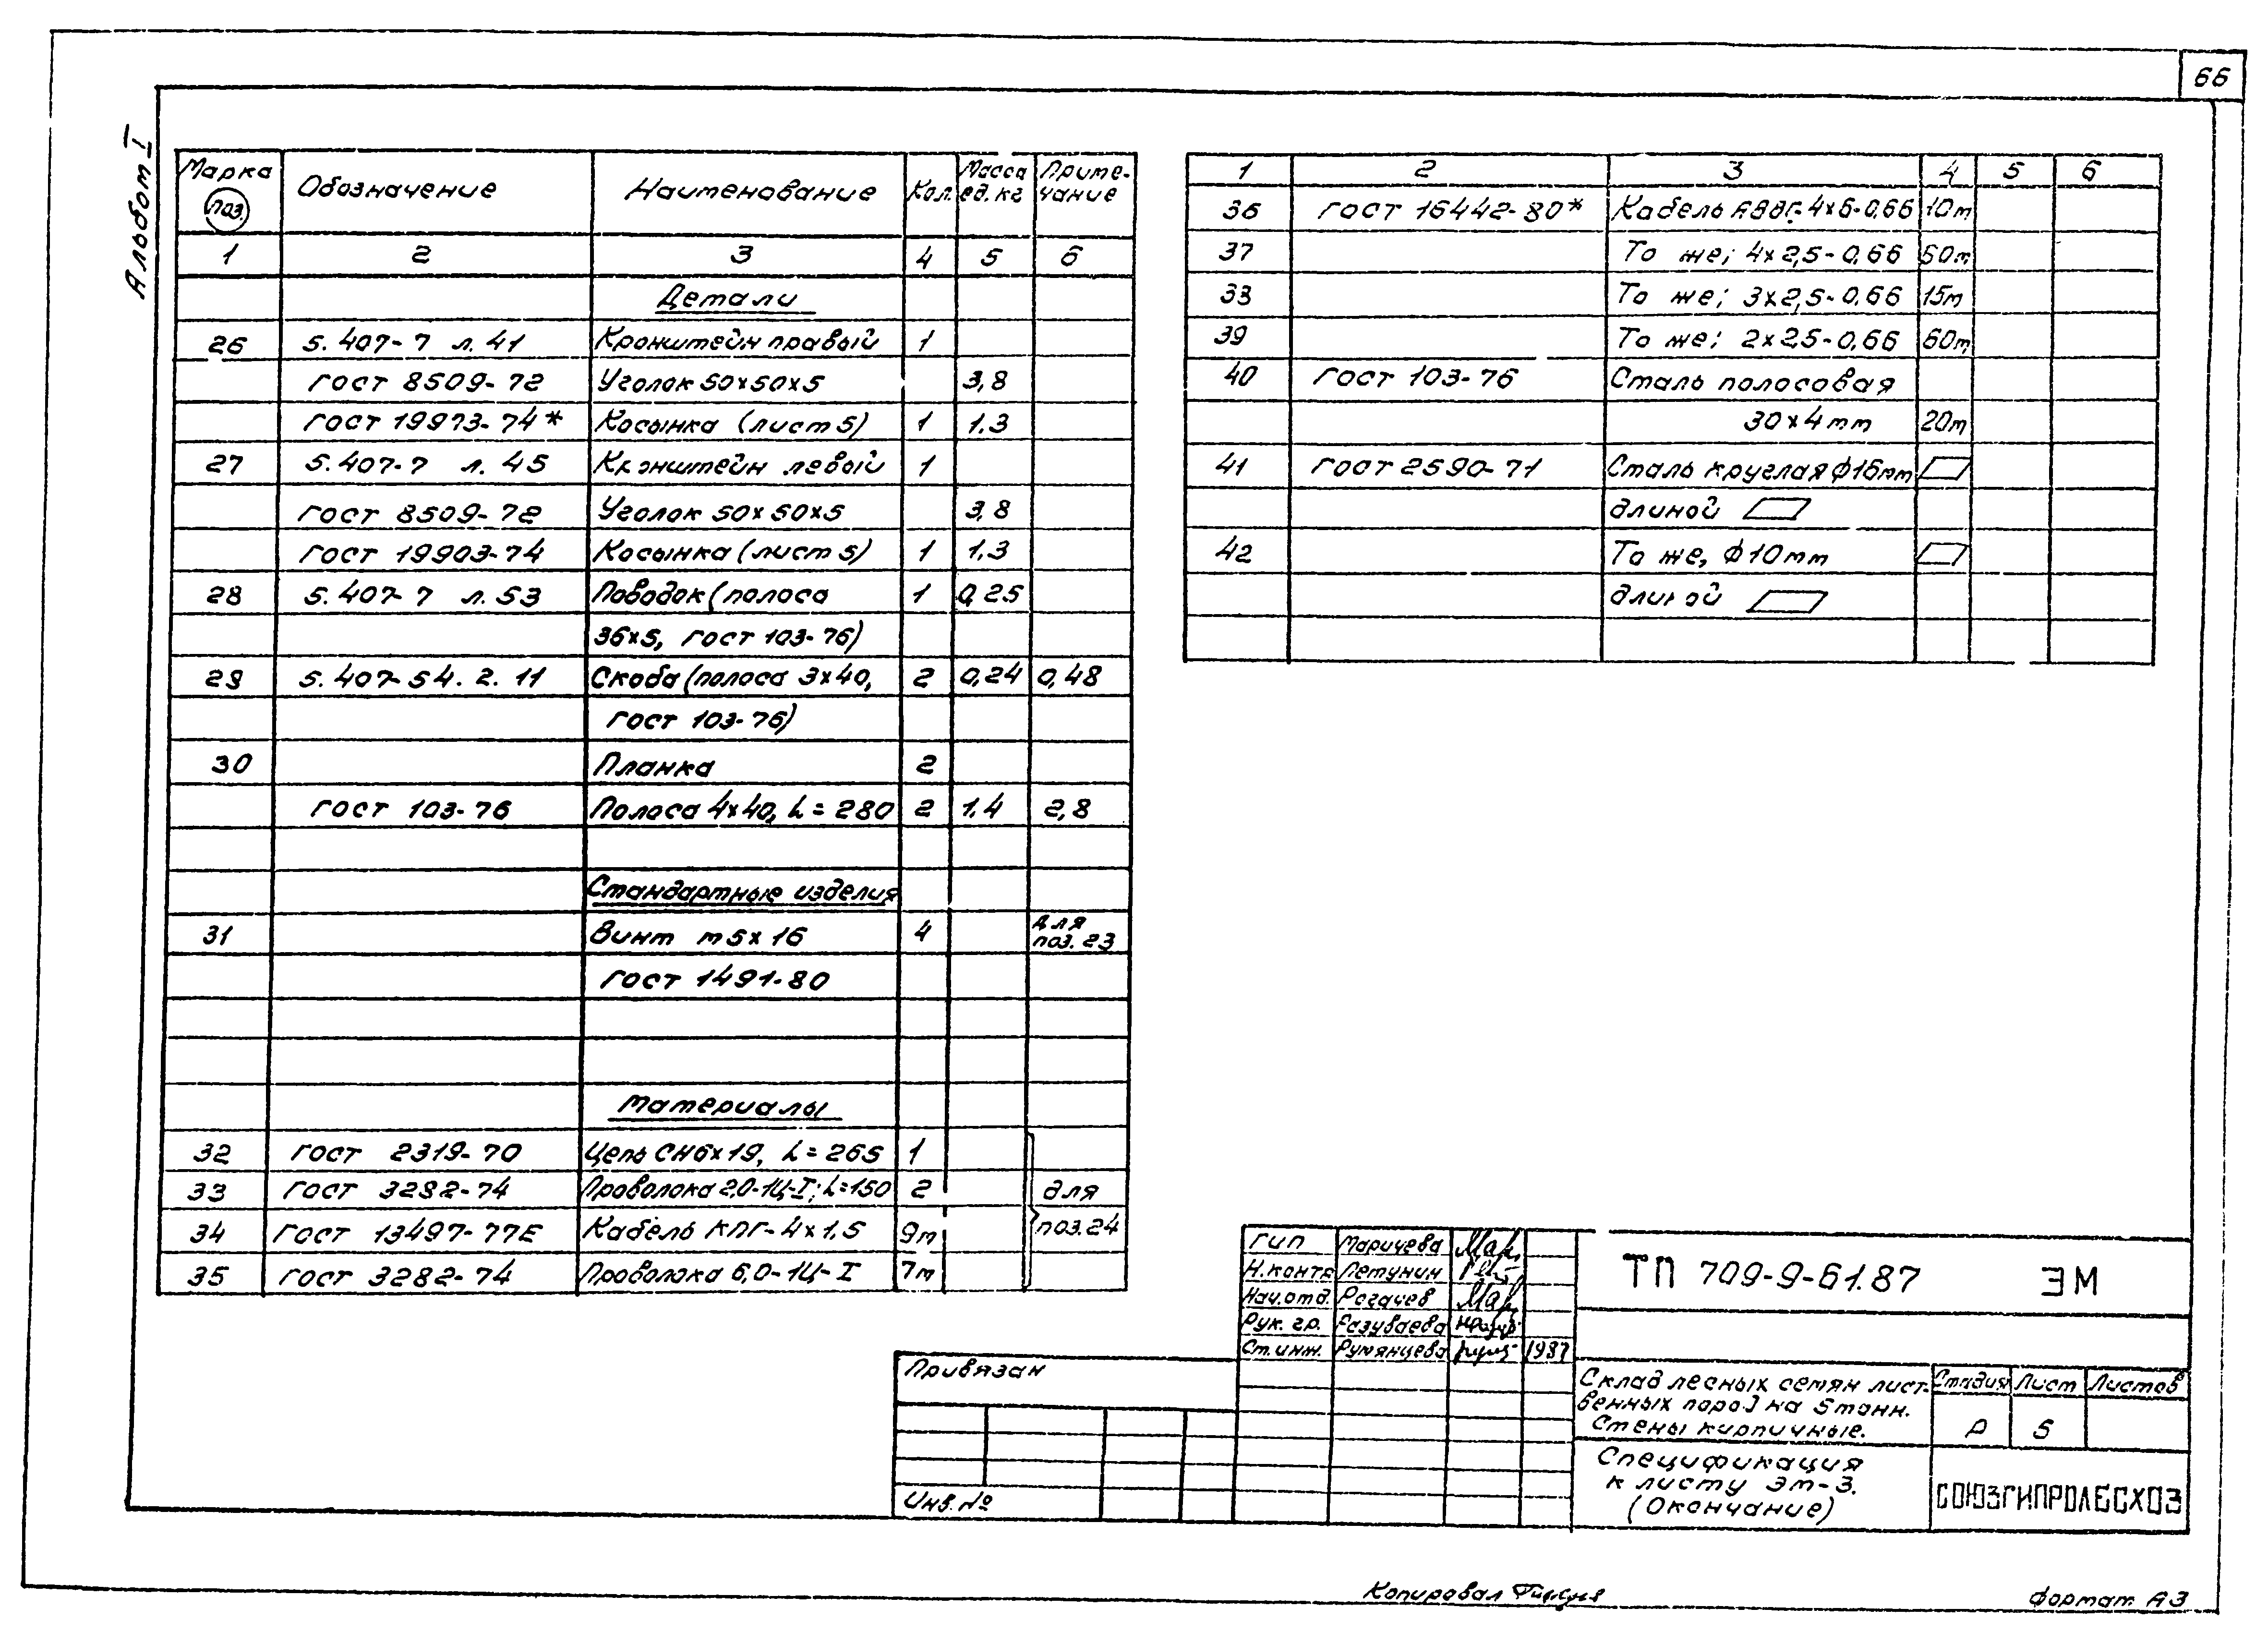 66
Альбом I
Марка поз. Обозначение Наименование Кол. Масса ед. кг Приме-чание
1 2 3 4 5 6
Детали
26 5.407-7 л. 41 Кронштейн правый 1
ГОСТ 8509-72 Уголок 50х50х5 3,8
ГОСТ 19973-74* Косынка (лист 5) 1 1.3
27 5.407-7 л. 45 Кронштейн левый 1
ГОСТ 8509-72 Уголок 50х50х5 3,8
ГОСТ 19903-74 Косынка (лист 5) 1 1.3
28 5.407-7 л. 53 Поводок (полоса 1 0,25
36х5, ГОСТ 103-76)
29 5.407-54. 2. 11 Скоба (полоса 3х40, 2 0,24 0,48
ГОСТ 103-76)
30 Планка 2
ГОСТ 103-76 Полоса 4х40, L = 280 2 1.4 2,8
Стандартные изделия
31 Винт м5х16 4 для поз. 23
ГОСТ 1491-80
Материалы
32 ГОСТ 2319-70 Цепь СН6х19, L = 265 1
33 ГОСТ 3282-74 Проволока 2,0-1Ц-I; L=150 2 для
34 ГОСТ 13497-77Е Кабель КПГ-4х1,5 9м поз. 24
35 ГОСТ 3282-74 Проволока 6,0-1Ц-I 7м
1 2 3 4 5 6
36 ГОСТ 16442-80* Кабель АВВГ-4х6-0,66 10м
37 То же; 4х2,5-0,66 60м
33 То же; 3х2,5-0,66 15м
39 То же; 2х2,5-0,66 60м
40 ГОСТ 103-76 Сталь полосовая
30х4мм 20м
41 ГОСТ 2590-71 Сталь круглая ф16мм
длиной
42 То же, ф10мм
длиной
ГИП Маричева
Н.контр Летунин
Нач.отд. Рогачев
Рук. гр. Разуваева
Ст. инж. Румянцева 1987
ТП 709-9-61.87 ЭМ
Привязан
Инв. №
Склад лесных семян лист-
венных пород на 5 тонн.
Стены кирпичные.
Стадия Лист Листов
Р 5
Спецификация
к листу ЭМ-3.
(Окончание)
СОЮЗГИПРОЛЕСХОЗ
Копировал
Формат А3